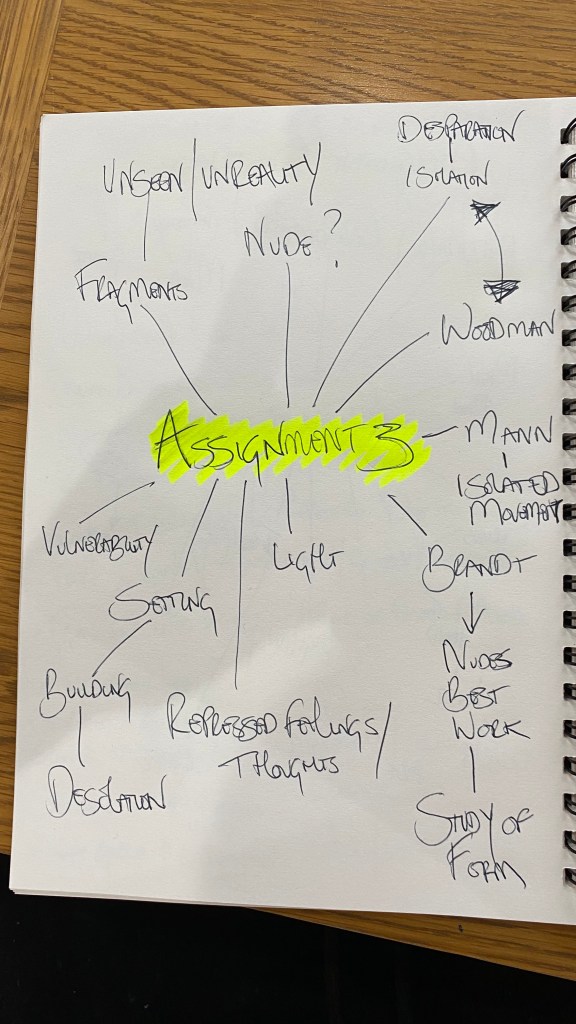 DESPARATION
ISOLATION
UNSEEN/UNREALITY
NUDE?
FRAGMENTS
WOODMAN
ASSIGNMENT 3
MANN
ISOLATED
MOVEMENT
VULNERABILITY
LIGHT
BRANDT
SETTING
NUDES
BEST
WORK
BUILDING
REPRESSED FEELINGS/
THOUGHTS
DESOLATION
STUDY OF
FORM